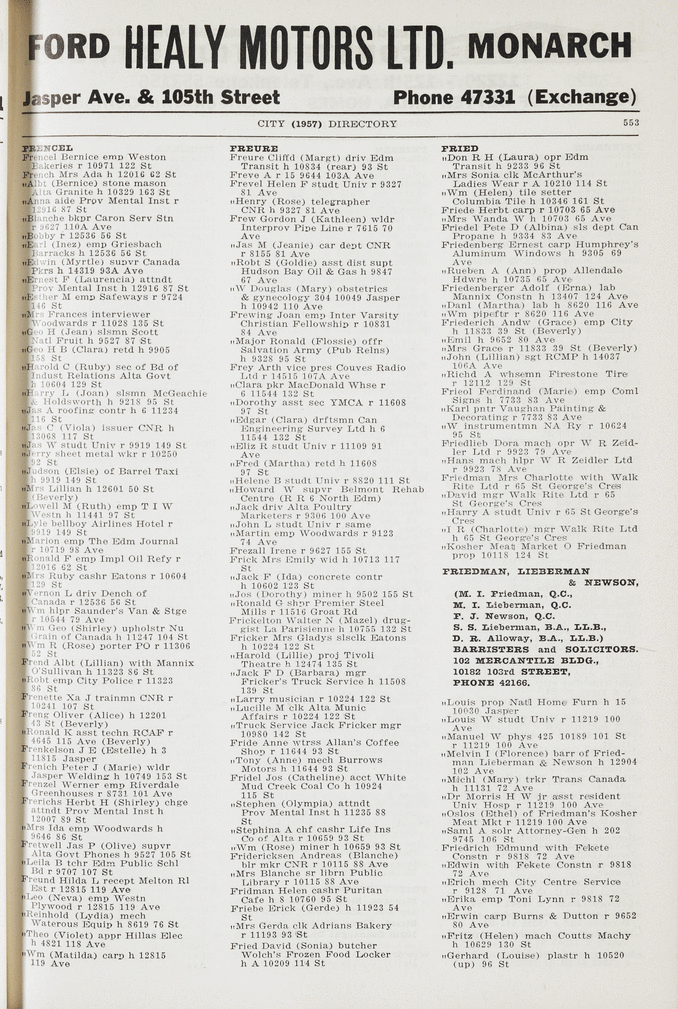 FORD HEALY MOTORS LTD. MONARCH
Jasper Ave. & 105th Street Phone 47331 (Exchange)
CITY (1957) DIRECTORY 553
FRENCEL
Frencel Bernice emp Weston
Bakeries r 10971 122 St
French Mrs Ada h 12016 62 St
"Albt (Bernice) stone mason
Alta Granite h 10329 163 St
"Anna aide Prov Mental Inst r
12916 87 St
"Blanche bkpr Caron Serv Stn
r 9627 110A Ave
"Bobby r 12536 56 St
"Earl (Inez) emp Griesbach
Barracks h 12536 56 St
"Edwin (Myrtle) supvr Canada
Pkrs h 14319 93A Ave
"Ernest F (Laurencia) attndt
Prov Mental Inst h 12916 87 St
"Esther M emp Safeways r 9724
146 St
"Mrs Frances interviewer
Woodwards r 11028 135 St
"Geo H (Jean) slsmn Scott
Natl Fruit h 9527 87 St
"Geo H B (Clara) retd h 9905
158 St
"Harold C (Ruby) sec of Bd of
Indust Relations Alta Govt
h 10604 129 St
"Harry L (Joan) slsmn McGeachie
& Holdsworth h 9218 95 St
"Jas A roofing contr h 6 11234
116 St
"Jas C (Viola) issuer CNR h
13068 117 St
"Jas W studt Univ r 9919 149 St
"Jerry sheet metal wkr r 10250
92 St
"Judson (Elsie) of Barrel Taxi
h 9919 149 St
"Mrs Lillian h 12601 50 St
(Beverly)
"Lowell M (Ruth) emp T I W
Westn h 11441 97 St
"Lyle bellboy Airlines Hotel r
9919 149 St
"Marion emp The Edm Journal
r 10719 98 Ave
"Ronald F emp Impl Oil Refy r
12016 62 St
"Mrs Ruby cashr Eatons r 10604
129 St
"Vernon L driv Dench of
Canada r 12536 56 St
"Wm hlpr Saunder's Van & Stge
r 10544 79 Ave
"Wm Geo (Shirley) upholstr Nu
Grain of Canada h 11247 104 St
"Wm R (Rose) porter PO r 11306
52 St
Frend Albt (Lillian) with Mannix
O'Sullivan h 11323 86 St
"Robt emp City Police r 11323
86 St
Frenette Xa J trainmn CNR r
10241 107 St
Freng Oliver (Alice) h 12201
43 St (Beverly)
"Ronald K asst techn RCAF r
4645 115 Ave (Beverly)
Frenkelson J E (Estelle) h 3
11815 Jasper
Frenich Peter J (Marie) wldr
Jasper Welding h 10749 153 St
Frenzel Werner emp Riverdale
Greenhouses r 8731 101 Ave
Frerichs Herbt H (Shirley) chge
attndt Prov Mental Inst h
12007 89 St
"Mrs Ida emp Woodwards h
9646 86 St
Fretwell Jas P (Olive) supvr
Alta Govt Phones h 9527 105 St
"Leila B tchr Edm Public Schl
Bd r 9707 107 St
Freund Hilda L recept Melton Rl
Est r 12815 119 Ave
"Leo (Neva) emp Westn
Plywood r 12815 119 Ave
"Reinhold (Lydia) mech
Waterous Equip h 8619 76 St
"Theo (Violet) appr Hillas Elec
h 4821 118 Ave
"Wm (Matilda) carp h 12815
119 Ave
FREURE
Freure Cliffd (Margt) driv Edm
Transit h 10834 (rear) 93 St
Freve A r 15 9644 103A Ave
Frevel Helen F studt Univ r 9327
81 Ave
"Henry (Rose) telegrapher
CNR h 9327 81 Ave
Frew Gordon J (Kathleen) wldr
Interprov Pipe Line r 7615 70
Ave
"Jas M (Jeanie) car dept CNR
r 8155 81 Ave
"Robt S (Goldie) asst dist supt
Hudson Bay Oil & Gas h 9847
67 Ave
"W Douglas (Mary) obstetrics
& gynecology 304 10049 Jasper
h 10942 110 Ave
Frewing Joan emp Inter Varsity
Christian Fellowship r 10831
84 Ave
"Major Ronald (Flossie) offr
Salvation Army (Pub Relns)
h 9328 95 St
Frey Arth vice pres Couves Radio
Ltd r 14515 107A Ave
"Clara pkr MacDonald Whse r
6 11544 132 St
"Dorothy asst sec YMCA r 11608
97 St
"Edgar (Clara) drftsmn Can
Engineering Survey Ltd h 6
11544 132 St
"Eliz R studt Univ r 11109 91
Ave
"Fred (Martha) retd h 11608
97 St
"Helene B studt Univ r 8820 111 St
"Howard W supvr Belmont Rehab
Centre (R R 6 North Edm)
"Jack driv Alta Poultry
Marketers r 9306 100 Ave
"John L studt Univ r same
"Martin emp Woodwards r 9123
74 Ave
Frezall Irene r 9627 155 St
Frick Mrs Emily wid h 10713 117
St
"Jack F (Ida) concrete contr
h 10602 123 St
"Jos (Dorothy) miner h 9502 155 St
"Ronald G shpr Premier Steel
Mills r 11516 Groat Rd
Frickelton Walter N (Mazel) drug-
gist La Parisienne h 10755 132 St
Fricker Mrs Gladys slsclk Eatons
h 10224 122 St
"Harold (Lillie) proj Tivoli
Theatre h 12474 135 St
"Jack F D (Barbara) mgr
Fricker's Truck Service h 11508
139 St
"Larry musician r 10224 122 St
"Lucille M clk Alta Munic
Affairs r 10224 122 St
"Truck Service Jack Fricker mgr
10980 142 St
Fride Anne wtrss Allan's Coffee
Shop r 11644 93 St
"Tony (Anne) mech Burrows
Motors h 11644 93 St
Fridel Jos (Catheline) acct White
Mud Creek Coal Co h 10924
115 St
"Stephen (Olympia) attndt
Prov Mental Inst h 11235 88
St
"Stephina A chf cashr Life Ins
Co of Alta r 10659 93 St
"Wm (Rose) miner h 10659 93 St
Fridericksen Andreas (Blanche)
blr mkr CNR r 10115 88 Ave
"Mrs Blanche sr librn Public
Library r 10115 88 Ave
Fridman Helen cashr Puritan
Cafe h 8 10760 95 St
Friebe Erick (Gerde) h 11923 54
St
"Mrs Gerda clk Adrians Bakery
r 11193 93 St
Fried David (Sonia) butcher
Wolch's Frozen Food Locker
h A 10209 114 St
FRIED
"Don R H (Laura) opr Edm
Transit h 9233 96 St
"Mrs Sonia clk McArthur's
Ladies Wear r A 10210 114 St
"Wm (Helen) tile setter
Columbia Tile h 10346 161 St
Friede Herbt carp r 10703 65 Ave
"Mrs Wanda W h 10703 65 Ave
Friedel Pete D (Albina) sls dept Can
Propane h 9334 83 Ave
Friedenberg Ernest carp Humphrey's
Aluminum Windows h 9305 69
Ave
"Rueben A (Ann) prop Allendale
Hdwre h 10735 65 Ave
Friedenberger Adolf (Erna) lab
Mannix Constn h 13407 124 Ave
"Danl (Martha) lab h 8620 116 Ave
"Wm pipeftr r 8620 116 Ave
Friederich Andw (Grace) emp City
h 11833 39 St (Beverly)
"Emil h 9652 80 Ave
"Mrs Grace r 11833 39 St (Beverly)
"John (Lillian) sgt RCMP h 14037
106A Ave
"Richd A whsemn Firestone Tire
r 12112 129 St
Frieol Ferdinand (Marie) emp Coml
Signs h 7733 83 Ave
"Karl pntr Vaughan Painting &
Decorating r 7733 83 Ave
"W instrumentmn NA Ry r 10624
95 St
Friedlieb Dora mach opr W R Zeid-
ler Ltd r 9923 79 Ave
"Hans mach hlpr W R Zeidler Ltd
r 9923 78 Ave
Friedman Mrs Charlotte with Walk
Rite Ltd r 65 St George's Cres
"David mgr Walk Rite Ltd r 65
St George's Cres
"Harry A studt Univ r 65 St George's
Cres
"I R (Charlotte) mgr Walk Rite Ltd
h 65 St George's Cres
"Kosher Meat Market O Friedman
prop 10118 124 St
FRIEDMAN, LIEBERMAN
& NEWSON,
(M. I. Friedman, Q.C.,
M. I. Lieberman, Q.C.
F. J. Newson, Q.C.
S. S. Lieberman, B.A., LL.B.,
D. R. Alloway, B.A., LL.B.)
BARRISTERS and SOLICITORS.
102 MERCANTILE BLDG.,
10182 103rd STREET,
PHONE 42166.
"Louis prop Natl Home Furn h 15
10030 Jasper
"Louis W studt Univ r 11219 100
Ave
"Manuel W phys 425 10189 101 St
r 11219 100 Ave
"Melvin I (Florence) barr of Fried-
man Lieberman & Newson h 12904
102 Ave
"Michl (Mary) trkr Trans Canada
h 11131 72 Ave
"Dr Morris H W jr asst resident
Univ Hosp r 11219 100 Ave
"Oslos (Ethel) of Friedman's Kosher
Meat Mkt r 11219 100 Ave
"Saml A solr Attorney-Gen h 202
9745 106 St
Friedrich Edmund with Fekete
Constn r 9818 72 Ave
"Edwin with Fekete Constn r 9818
72 Ave
"Erich mech City Centre Service
r 9128 71 Ave
"Erika emp Toni Lynn r 9818 72
Ave
"Erwin carp Burns & Dutton r 9652
80 Ave
"Fritz (Helen) mach Coutts Machy
h 10629 130 St
"Gerhard (Louise) plastr h 10520
(up) 96 St